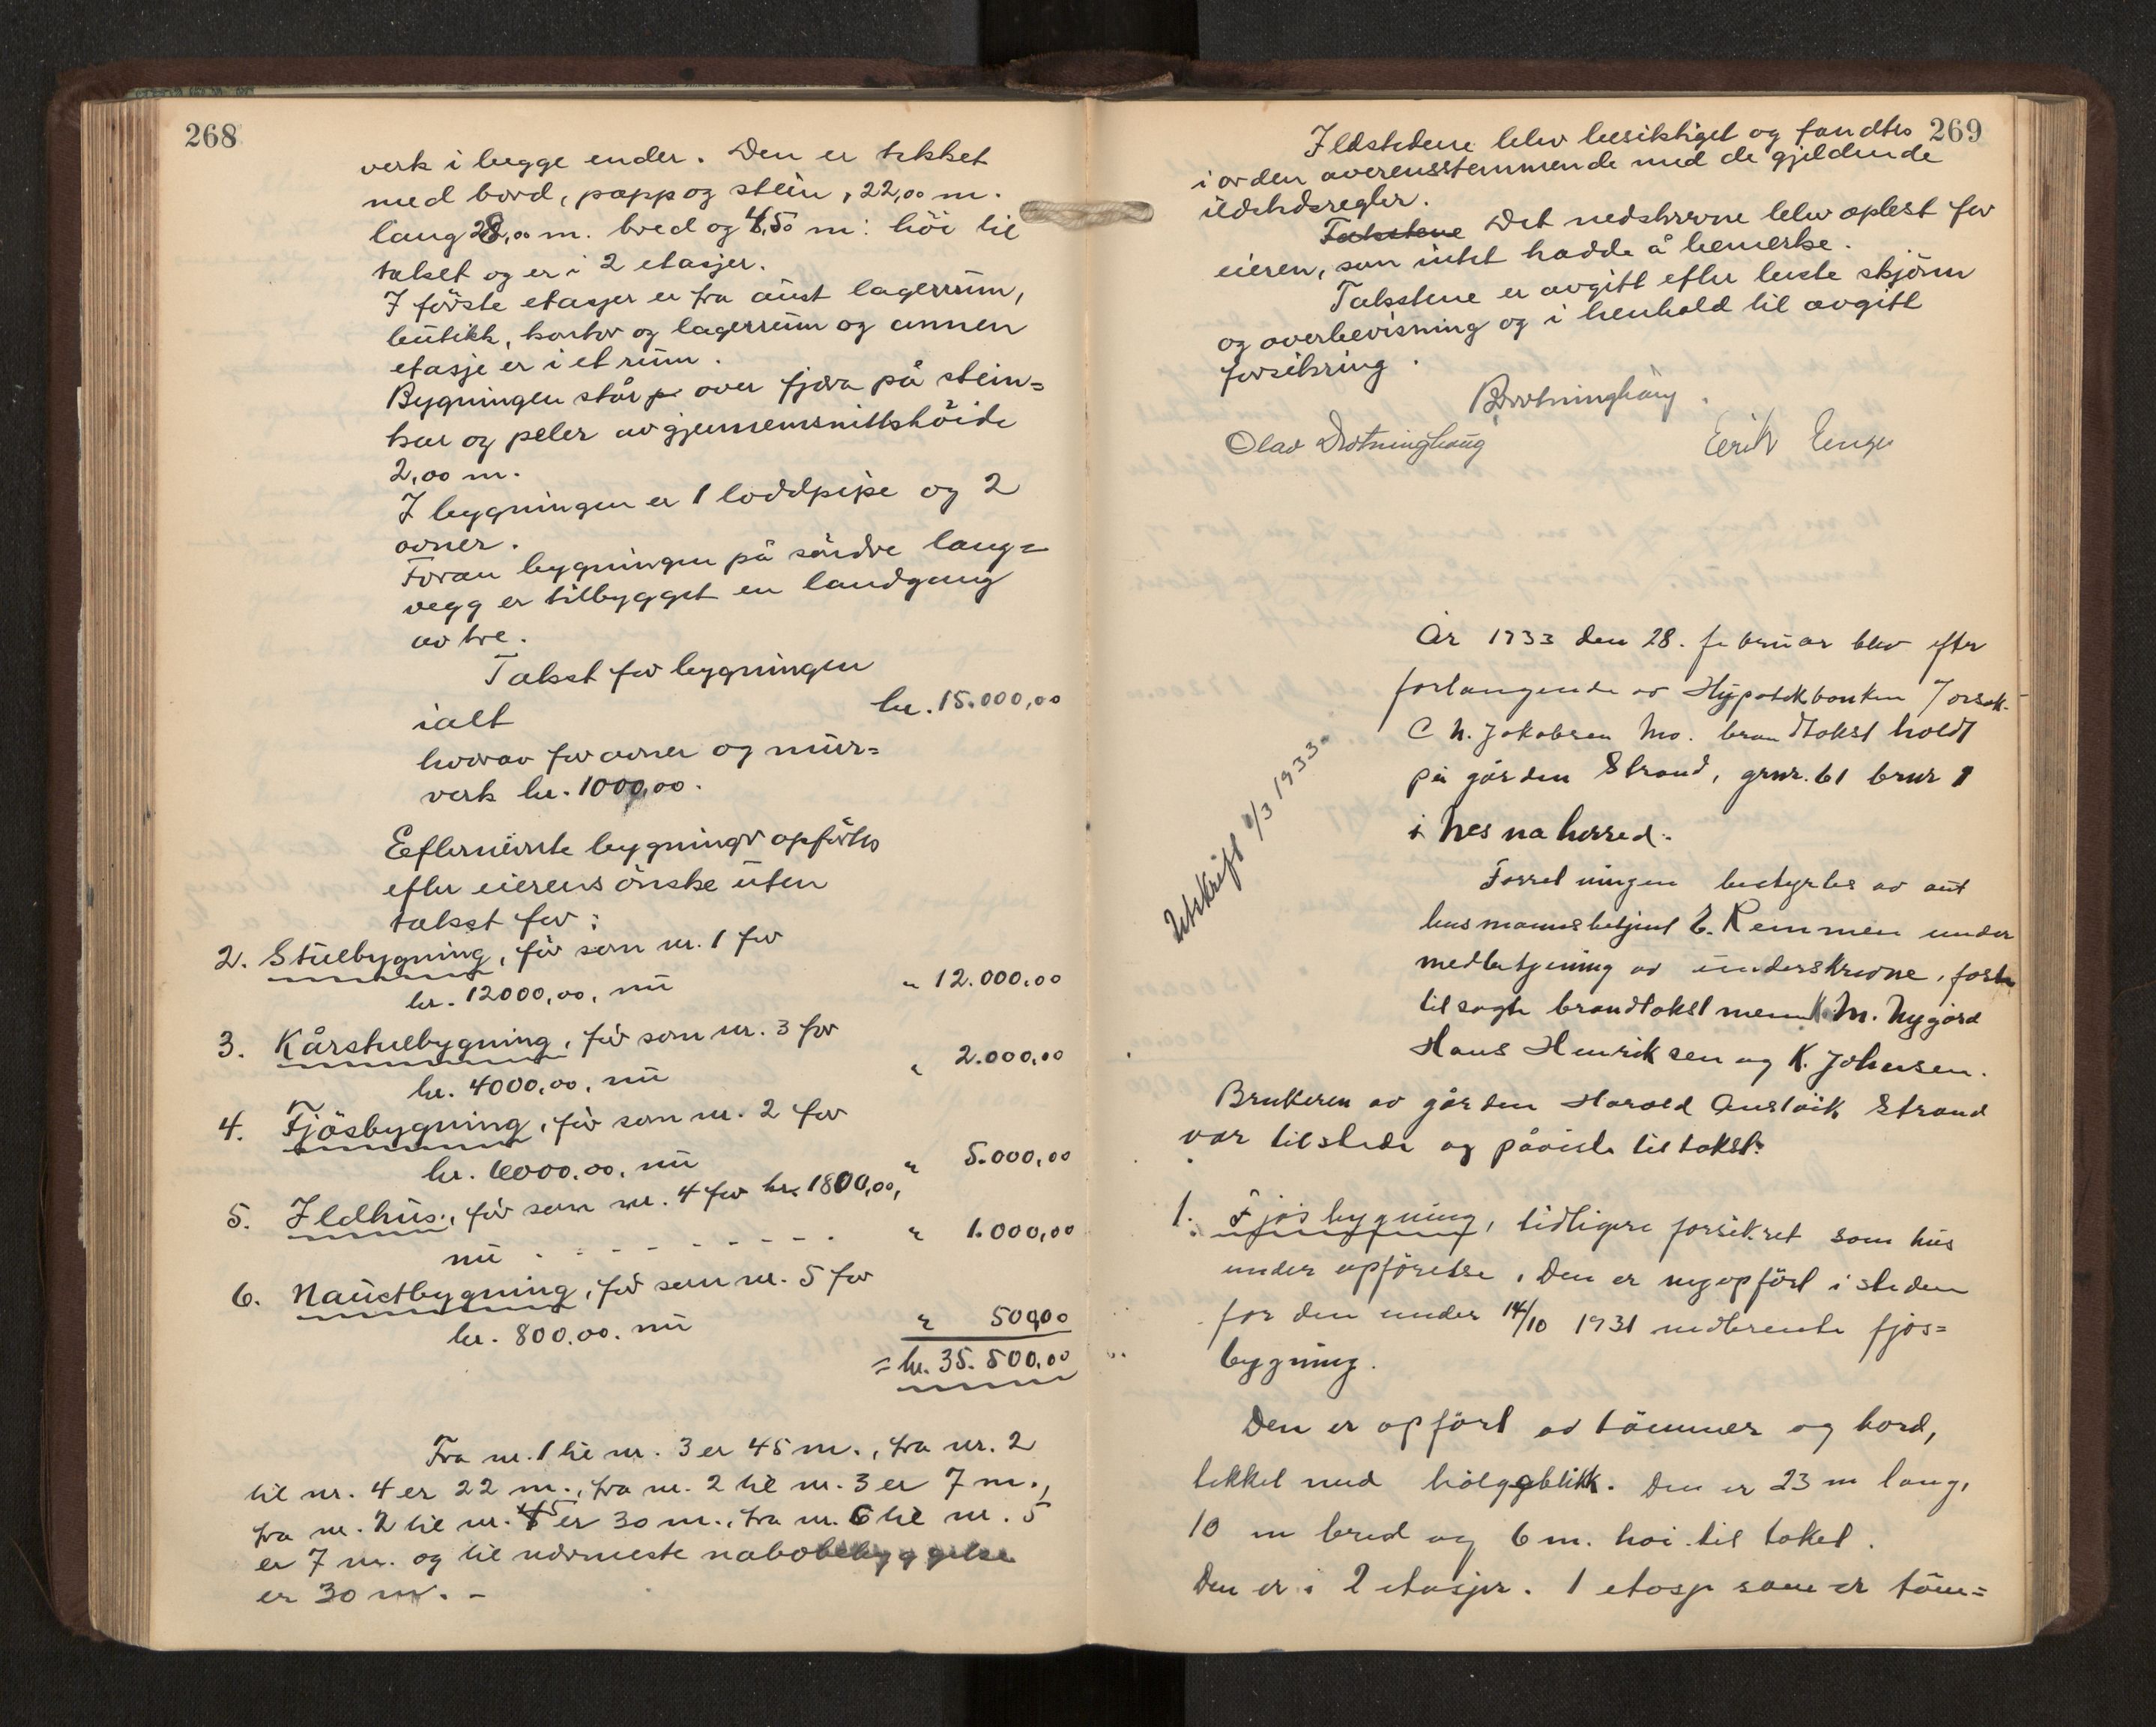 268
verk i begge ender. Den er tekket
med bord, papp og stein, 22,00 m.
lang 8,00 m. bred og 4,50 m. höi til
taket og er i 2 etasjer.
I förste etasjer er fra aust lagerrum,
butikk, kontor og lagerrum og annen
etasje er i et rum.
Bygningen står på over fjæra på stein=
kar og peler av gjennemsnittshöide
2,00 m.
I bygningen er 1 loddpipe og 2
ovner.
Foran bygningen på söndre lang=
vegg er tilbygget en landgang
av tre.
Takst for bygningen
ialt kr. 15.000,00
hvorav for ovner og mur=
verk kr. 1000,00.
Efternevnte bygninger opförtes
efter eierens önske uten
takst for:
2. Stuebygning, för som nr. 1 for
kr. 12000,00, nu " 12.000,00
3. Kårstuebygning, för som nr. 3 for
kr. 4000,00, nu " 2.000,00
4. Fjösbygning, för som nr. 2 for
kr. 6000,00, nu " 5.000,00
5. Ildhus, för som nr. 4 for kr. 1800,00,
nu - - - - - - - - " 1.000,00
6. Naustbygning, för som nr. 5 for
kr. 800,00. nu " 500,00
= kr. 35.500,00
Fra nr. 1 til nr. 3 er 45 m., fra nr. 2
til nr. 4 er 22 m., fra nr. 2 til nr. 3 er 7 m.,
fra nr. 2 til nr. 5 er 30 m., fra nr. 6 til nr. 5
er 7 m. og til nærmeste nabobebyggelse
er 30 m. -
269
Ildstedene blev besiktiget og fandtes
i orden overensstemmende med de gjeldende
ildstedsregler.
Takstene Det nedskrevne blev oplest for
eieren, som intet hadde å bemerke.
Takstene er avgitt efter beste skjönn
og overbevisning og i henhold til avgitt
forsikring.
BDrotninghaug.
Olav Drotninghaug Eerik Enge
År 1933 den 28. februar blev efter
forlangende av Hypotekbanken v/ orsak.
C N. Jakobsen Mo. brandtakst holdt
på gården Strand, grnr. 61 brnr 1
i Nesna herred.
Utskrift 1/3 1933.
Forretningen bestyrtes av aut
lensmannsbetjent E. Remmen under
medbetjening av underskrevne, faste
tilsagte brandtakstmenn M. Nygård
Hans Henriksen og K. Johansen.
Brukeren av gården Harold Strand
var tilstede og påviste til takst:
1. Fjösbygning, tidligere forsikret som hus
under opförelse. Den er nyopfört i steden
for den under 14/10 1931 nedbrente fjös=
bygning.
Den er opfört av tömmer og bord,
tekket med bölggblikk. Den er 23 m lang,
10 m bred og 6 m. höi til taket.
Den er i 2 etasjer. 1 etasje som er töm=